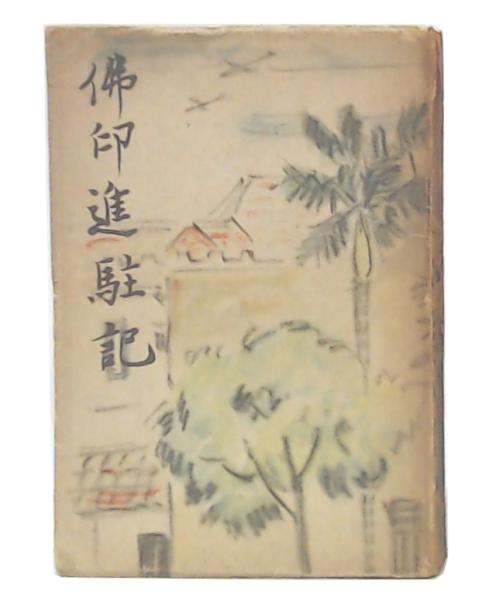 佛印進駐記